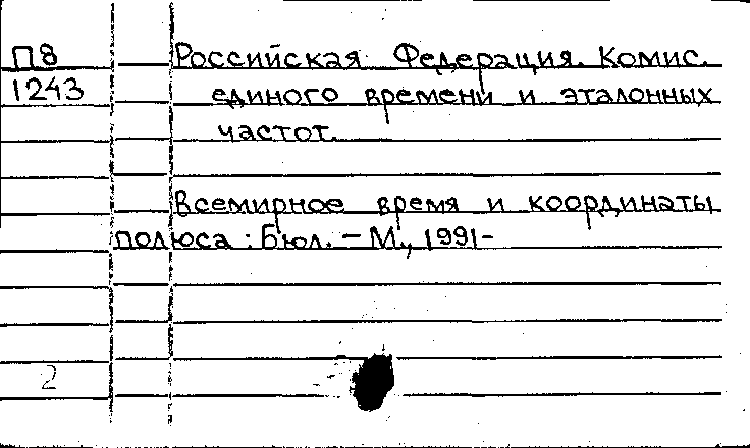 П8 Российская Федерация. Комис.
1243 единого времени и эталонных
частот.
Всемирное время и координаты
полюса : Бюл. – М., 1991-
2